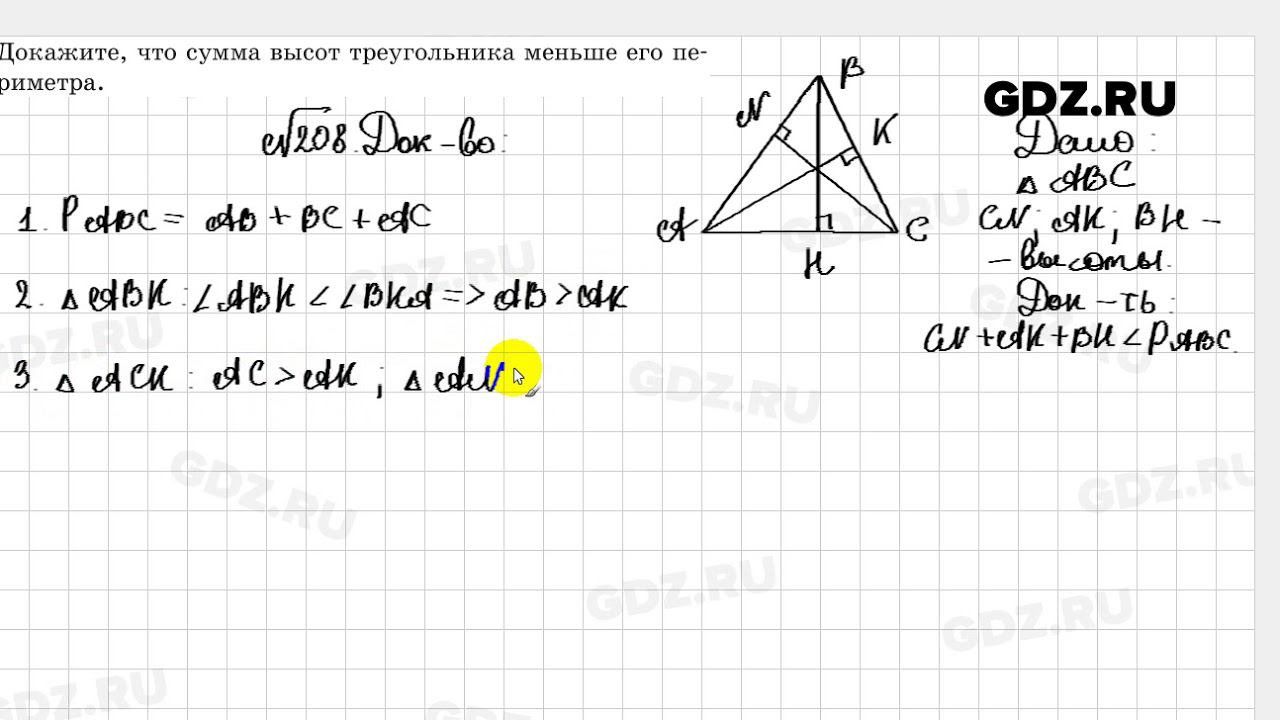 Докажите, что сумма высот треугольника меньше его пе-
риметра.
№208. Док-во:
1. P ABC = AB + BC + AC
2. △ ABK : ∠ABK < ∠BKA => AB > AK
3. △ ACK : AC > AK ; △ AN
B
N
K
A
C
H
GDZ.RU
Дано:
△ ABC
CN; AK; BH -
- высоты.
Док-ть:
CN + AK + BH < P ABC.
GDZ.RU
GDZ.RU
GDZ.RU
GDZ.RU
GDZ.RU
GDZ.RU
GDZ.RU
GDZ.RU
GDZ.RU
GDZ.RU
GDZ.RU